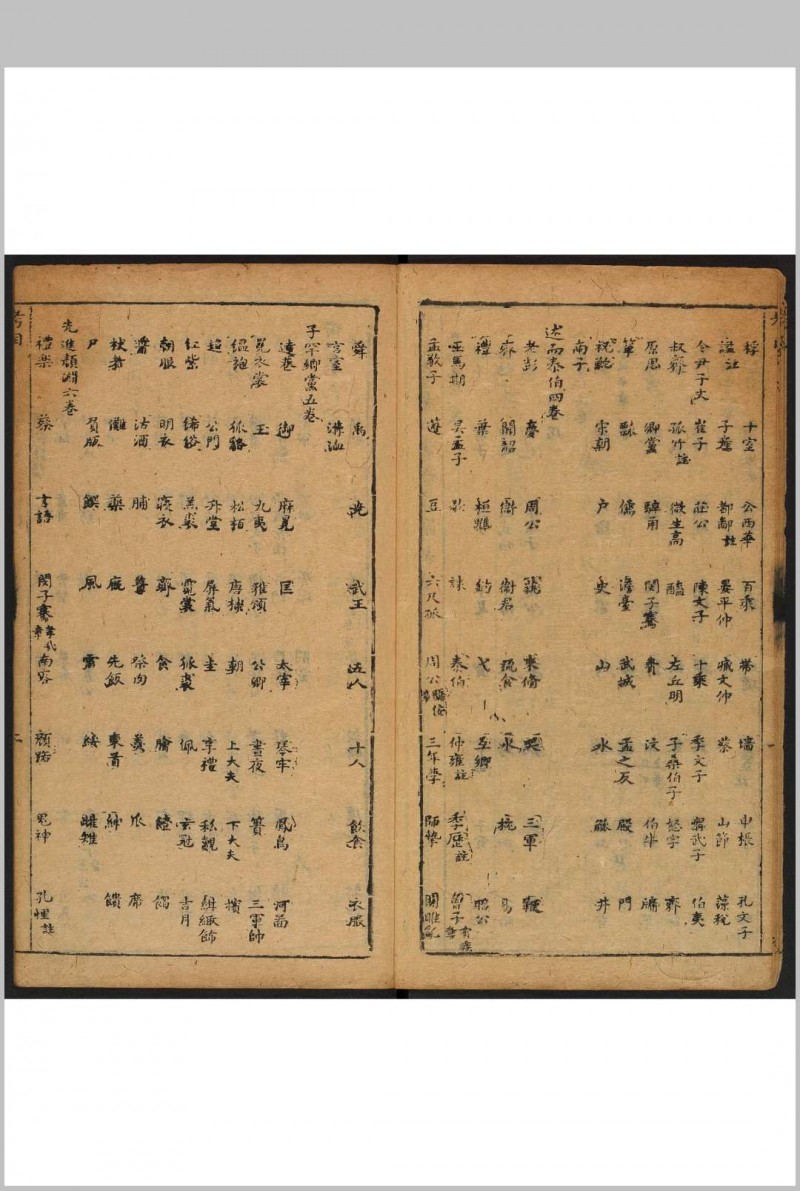 桴 十室 公西華 百乘 帶 墻 申棖 孔文子
諡註 子產 都鄙註 晏平仲 臧文仲 蔡 山節 藻梲
令尹子文 崔子 莊公 陳文子 十乘 季文子 甯武子 伯夷
叔齊 孤竹註 微生高 醯 左丘明 子桑伯子 怒字
原思 鄉黨 騂角 閔子騫 費 汶 伯牛 牖
簞 瓢 儒 澹臺 武城 孟之反 殿 門
祝鮀 宋朝 戶 史 山 水 觚 井
南子
述而泰伯四卷
老彭 夢 周公 束脩 哭 三軍 鞭
齊 聞韶 衛 衛君 疏食 水 枕 易
禮 葉 桓魋 釣 弋 互鄉 昭公
巫馬期 吳孟子 歌 誄 泰伯 仲雍註 季歷註 曾子有疾
孟敬子 籩 豆 六尺孤 周公驕吝 三年學 師摯 關雎亂
舜 禹 堯 武王 五人 十人 飲食 衣服
宮室 溝洫
子罕鄉黨五卷
達巷 御 麻冕 匡 太宰 琴牢 鳳鳥 河圖
冕衣裳 玉 九夷 雅頌 公卿 晝夜 簣 三軍帥
縕袍 狐貉 松柏 唐棣 朝 上大夫 下大夫 擯
趨 公門 升堂 屏氣 圭 享禮 私覿 紺緅飾
紅紫 絺綌 羔裘 狐裘 佩 玄冠 吉月
朝服 明衣 寢衣 齊 食 膾 饐 餲
醬 沽酒 脯 薑 祭肉 羹 瓜 席
杖者 儺 藥 廄 先飯 東首 紳 饋
尸 負版 饌 風 雷 綏 雌雉
先進顏淵六卷
禮樂 蔡 言語 閔子騫 南容 顏路 鬼神 孔悝註